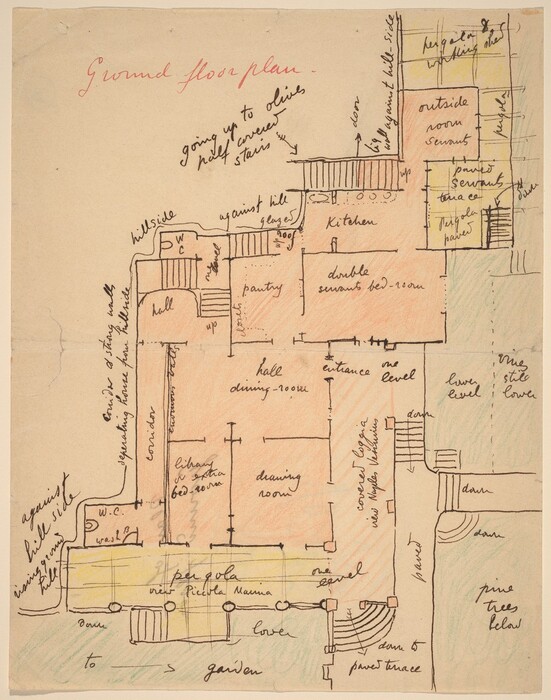 Ground floor plan -
pergola &
working shed
going up to olives
half covered
stairs
door
big
wall against hill side
outside
room
servants
pergola
up
paved
servants
terrace
Pergola
paved
down
hillside
against hill
glazed
roof
up
Kitchen
W
C
hall
up
pantry
double
servants bed-room
corridor & strong walls
seperating house from hillside
corridor
hall
dining-room
entrance
one
level
lower
level
vines
still
lower
library
& extra
bed-room
drawing
room
covered loggia
view Naples Vesuvius
down
down
down
against
hill side
rising ground
hill
W.C.
wash
pergola
view Piccola Marina
one
level
paved
pine
trees
below
down
lower
down to
paved terrace
to → garden